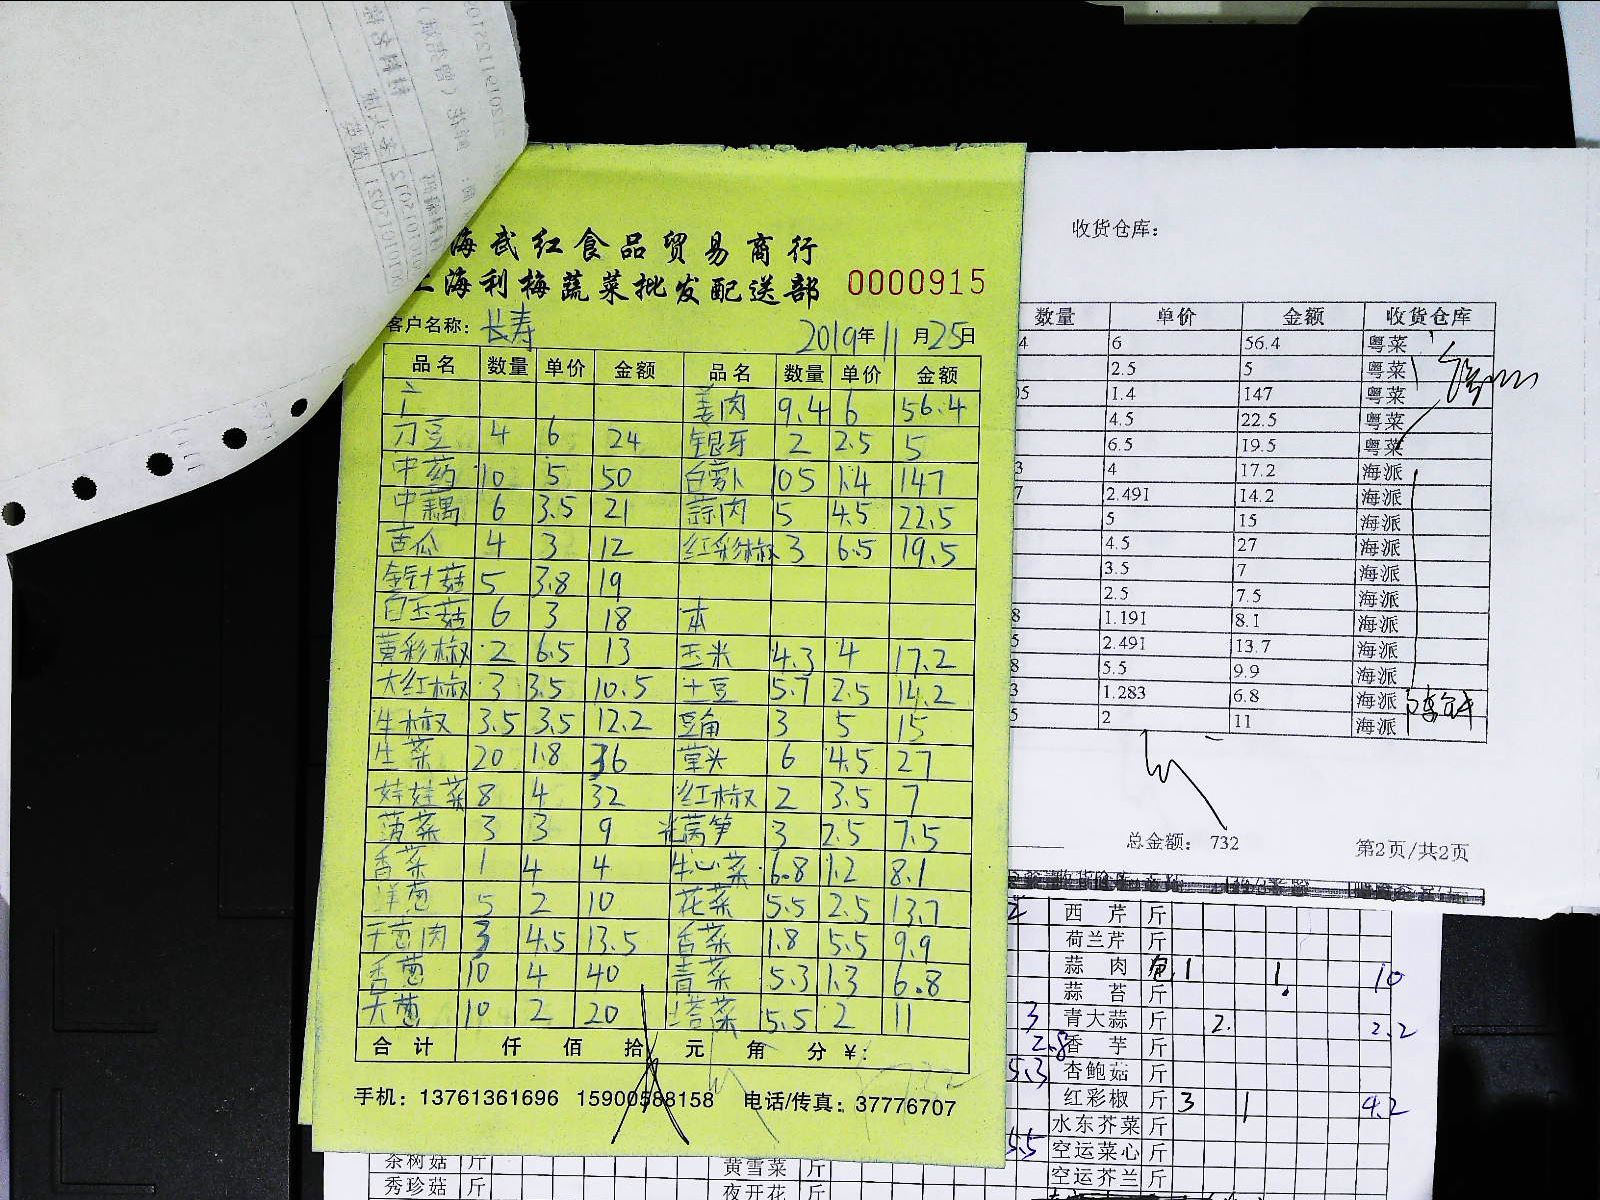 海武红食品贸易商行
上海利梅蔬菜批发配送部 0000915
客户名称: 长寿 2019年11月25日
品名 数量 单价 金额 品名 数量 单价 金额
姜肉 9.4 6 56.4
刀豆 4 6 24 银牙 2 2.5 5
中药 10 5 50 白萝卜 105 1.4 147
中藕 6 3.5 21 蒜肉 5 4.5 22.5
苦瓜 4 3 12 红彩椒 3 6.5 19.5
金针菇 5 3.8 19
白玉菇 6 3 18 本
黄彩椒 2 6.5 13 玉米 4.3 4 17.2
大红椒 3 3.5 10.5 土豆 5.7 2.5 14.2
牛椒 3.5 3.5 12.2 豆角 3 5 15
生菜 20 1.8 36 草头 6 4.5 27
娃娃菜 8 4 32 红椒 2 3.5 7
菠菜 3 3 9 光莴笋 3 2.5 7.5
香菜 1 4 4 牛心菜 6.8 1.2 8.1
洋葱 5 2 10 花菜 5.5 2.5 13.7
干葱肉 3 4.5 13.5 1.8 5.5 9.9
香葱 10 4 40 青菜 5.3 1.3 6.8
大葱 10 2 20 塔菜 5.5 2 11
合计 仟 佰 拾 元 角 分 ¥:
手机: 13761361696 15900588158 电话/传真: 37776707
收货仓库:
数量 单价 金额 收货仓库
4 6 56.4 粤菜
2.5 5 粤菜
05 1.4 147 粤菜
4.5 22.5 粤菜
6.5 19.5 粤菜
3 4 17.2 海派
7 2.491 14.2 海派
5 15 海派
4.5 27 海派
3.5 7 海派
2.5 7.5 海派
8 1.191 8.1 海派
5 2.491 13.7 海派
8 5.5 9.9 海派
3 1.283 6.8 海派
5 2 11 海派
总金额: 732 第2页/共2页
2 西芹 斤
荷兰芹 斤
蒜肉 包 1 1 10
蒜苔 斤
3 青大蒜 斤 2. 2.2
2.8 香芋 斤
5.3 杏鲍菇 斤
红彩椒 斤 3 1 4.2
水东芥菜 斤
5.5 空运菜心 斤
空运芥兰 斤
茶树菇 斤 黄雪菜 斤
秀珍菇 斤 夜开花 斤